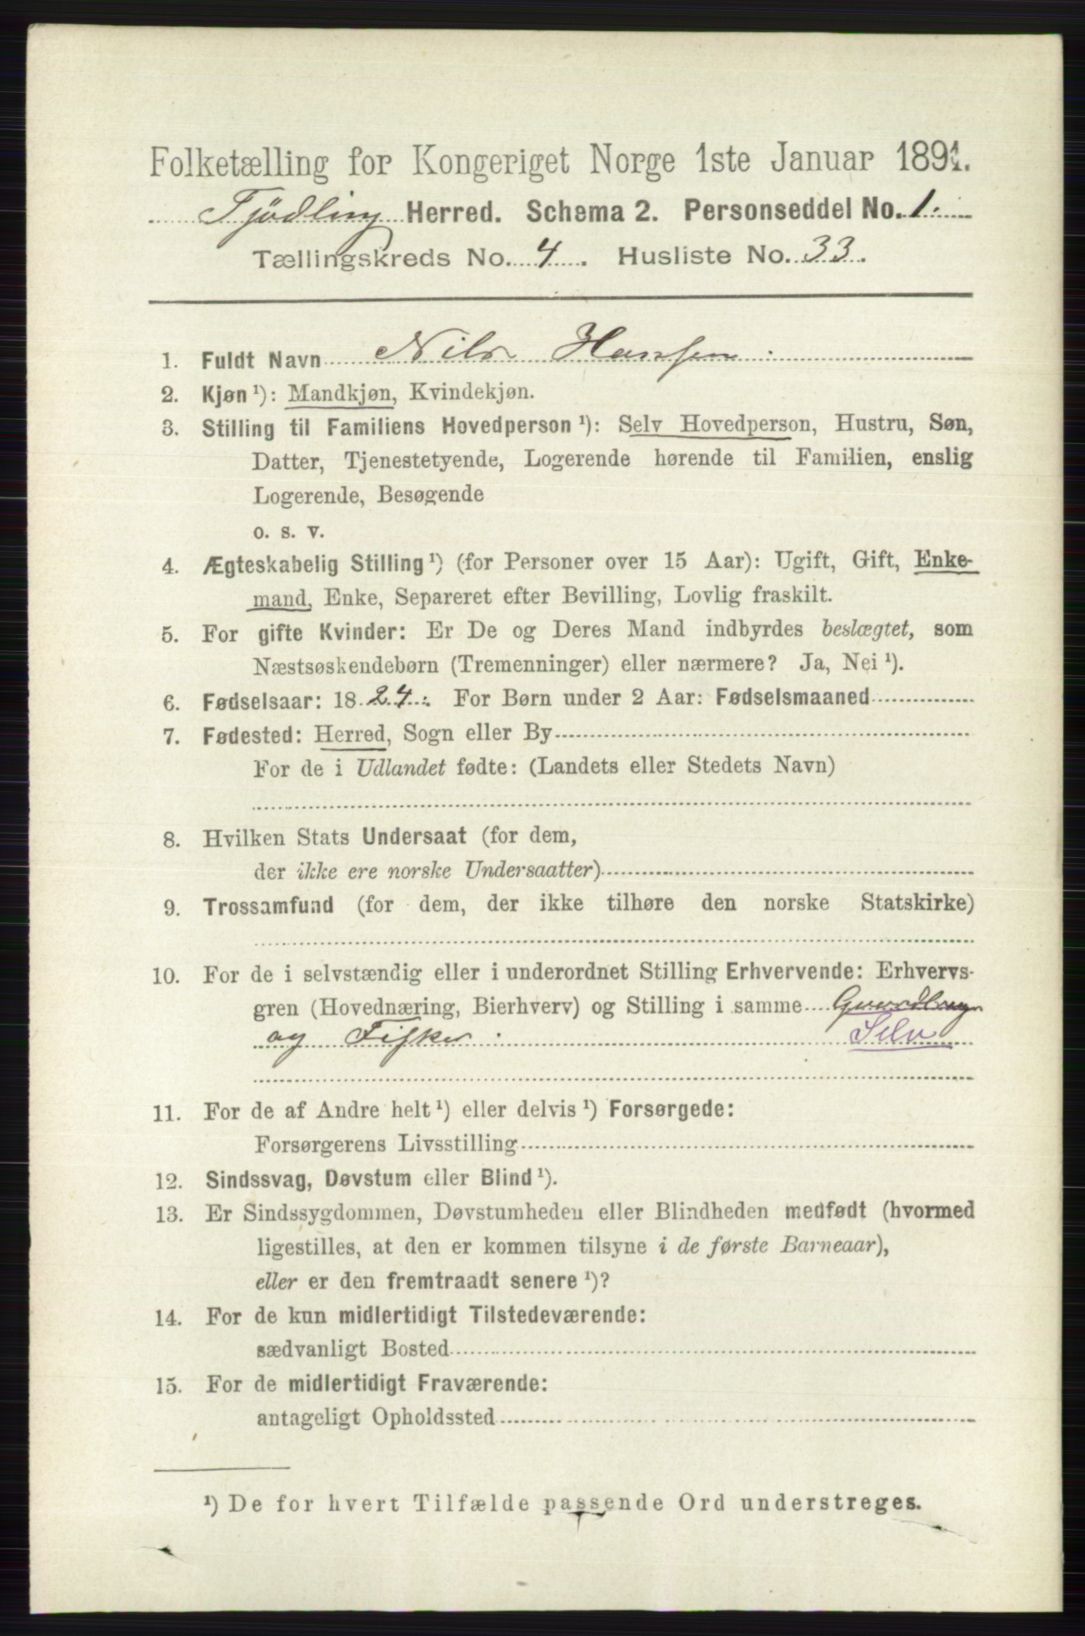 Folketælling for Kongeriget Norge 1ste Januar 1891.
Tjödling Herred. Schema 2. Personseddel No. 1.
Tællingskreds No. 4. Husliste No. 33.
1. Fuldt Navn Nils Hansen.
2. Kjøn ¹): Mandkjøn, Kvindekjøn.
3. Stilling til Familiens Hovedperson ¹): Selv Hovedperson, Hustru, Søn,
Datter, Tjenestetyende, Logerende hørende til Familien, enslig
Logerende, Besøgende
o. s. v.
4. Ægteskabelig Stilling ¹) (for Personer over 15 Aar): Ugift, Gift, Enke-
mand, Enke, Separeret efter Bevilling, Lovlig fraskilt.
5. For gifte Kvinder: Er De og Deres Mand indbyrdes beslægtet, som
Næstsøskendebørn (Tremenninger) eller nærmere? Ja, Nei ¹).
6. Fødselsaar: 1824. For Børn under 2 Aar: Fødselsmaaned
7. Fødested: Herred, Sogn eller By
For de i Udlandet fødte: (Landets eller Stedets Navn)
8. Hvilken Stats Undersaat (for dem,
der ikke ere norske Undersaatter)
9. Trossamfund (for dem, der ikke tilhøre den norske Statskirke)
10. For de i selvstændig eller i underordnet Stilling Erhvervende: Erhvervs-
gren (Hovednæring, Bierhverv) og Stilling i samme Gaardbrug
og Fisker. Selv
11. For de af Andre helt ¹) eller delvis ¹) Forsørgede:
Forsørgerens Livsstilling
12. Sindssvag, Døvstum eller Blind ¹).
13. Er Sindssygdommen, Døvstumheden eller Blindheden medfødt (hvormed
ligestilles, at den er kommen tilsyne i de første Barneaar),
eller er den fremtraadt senere ¹)?
14. For de kun midlertidigt Tilstedeværende:
sædvanligt Bosted
15. For de midlertidigt Fraværende:
antageligt Opholdssted
¹) De for hvert Tilfælde passende Ord understreges.